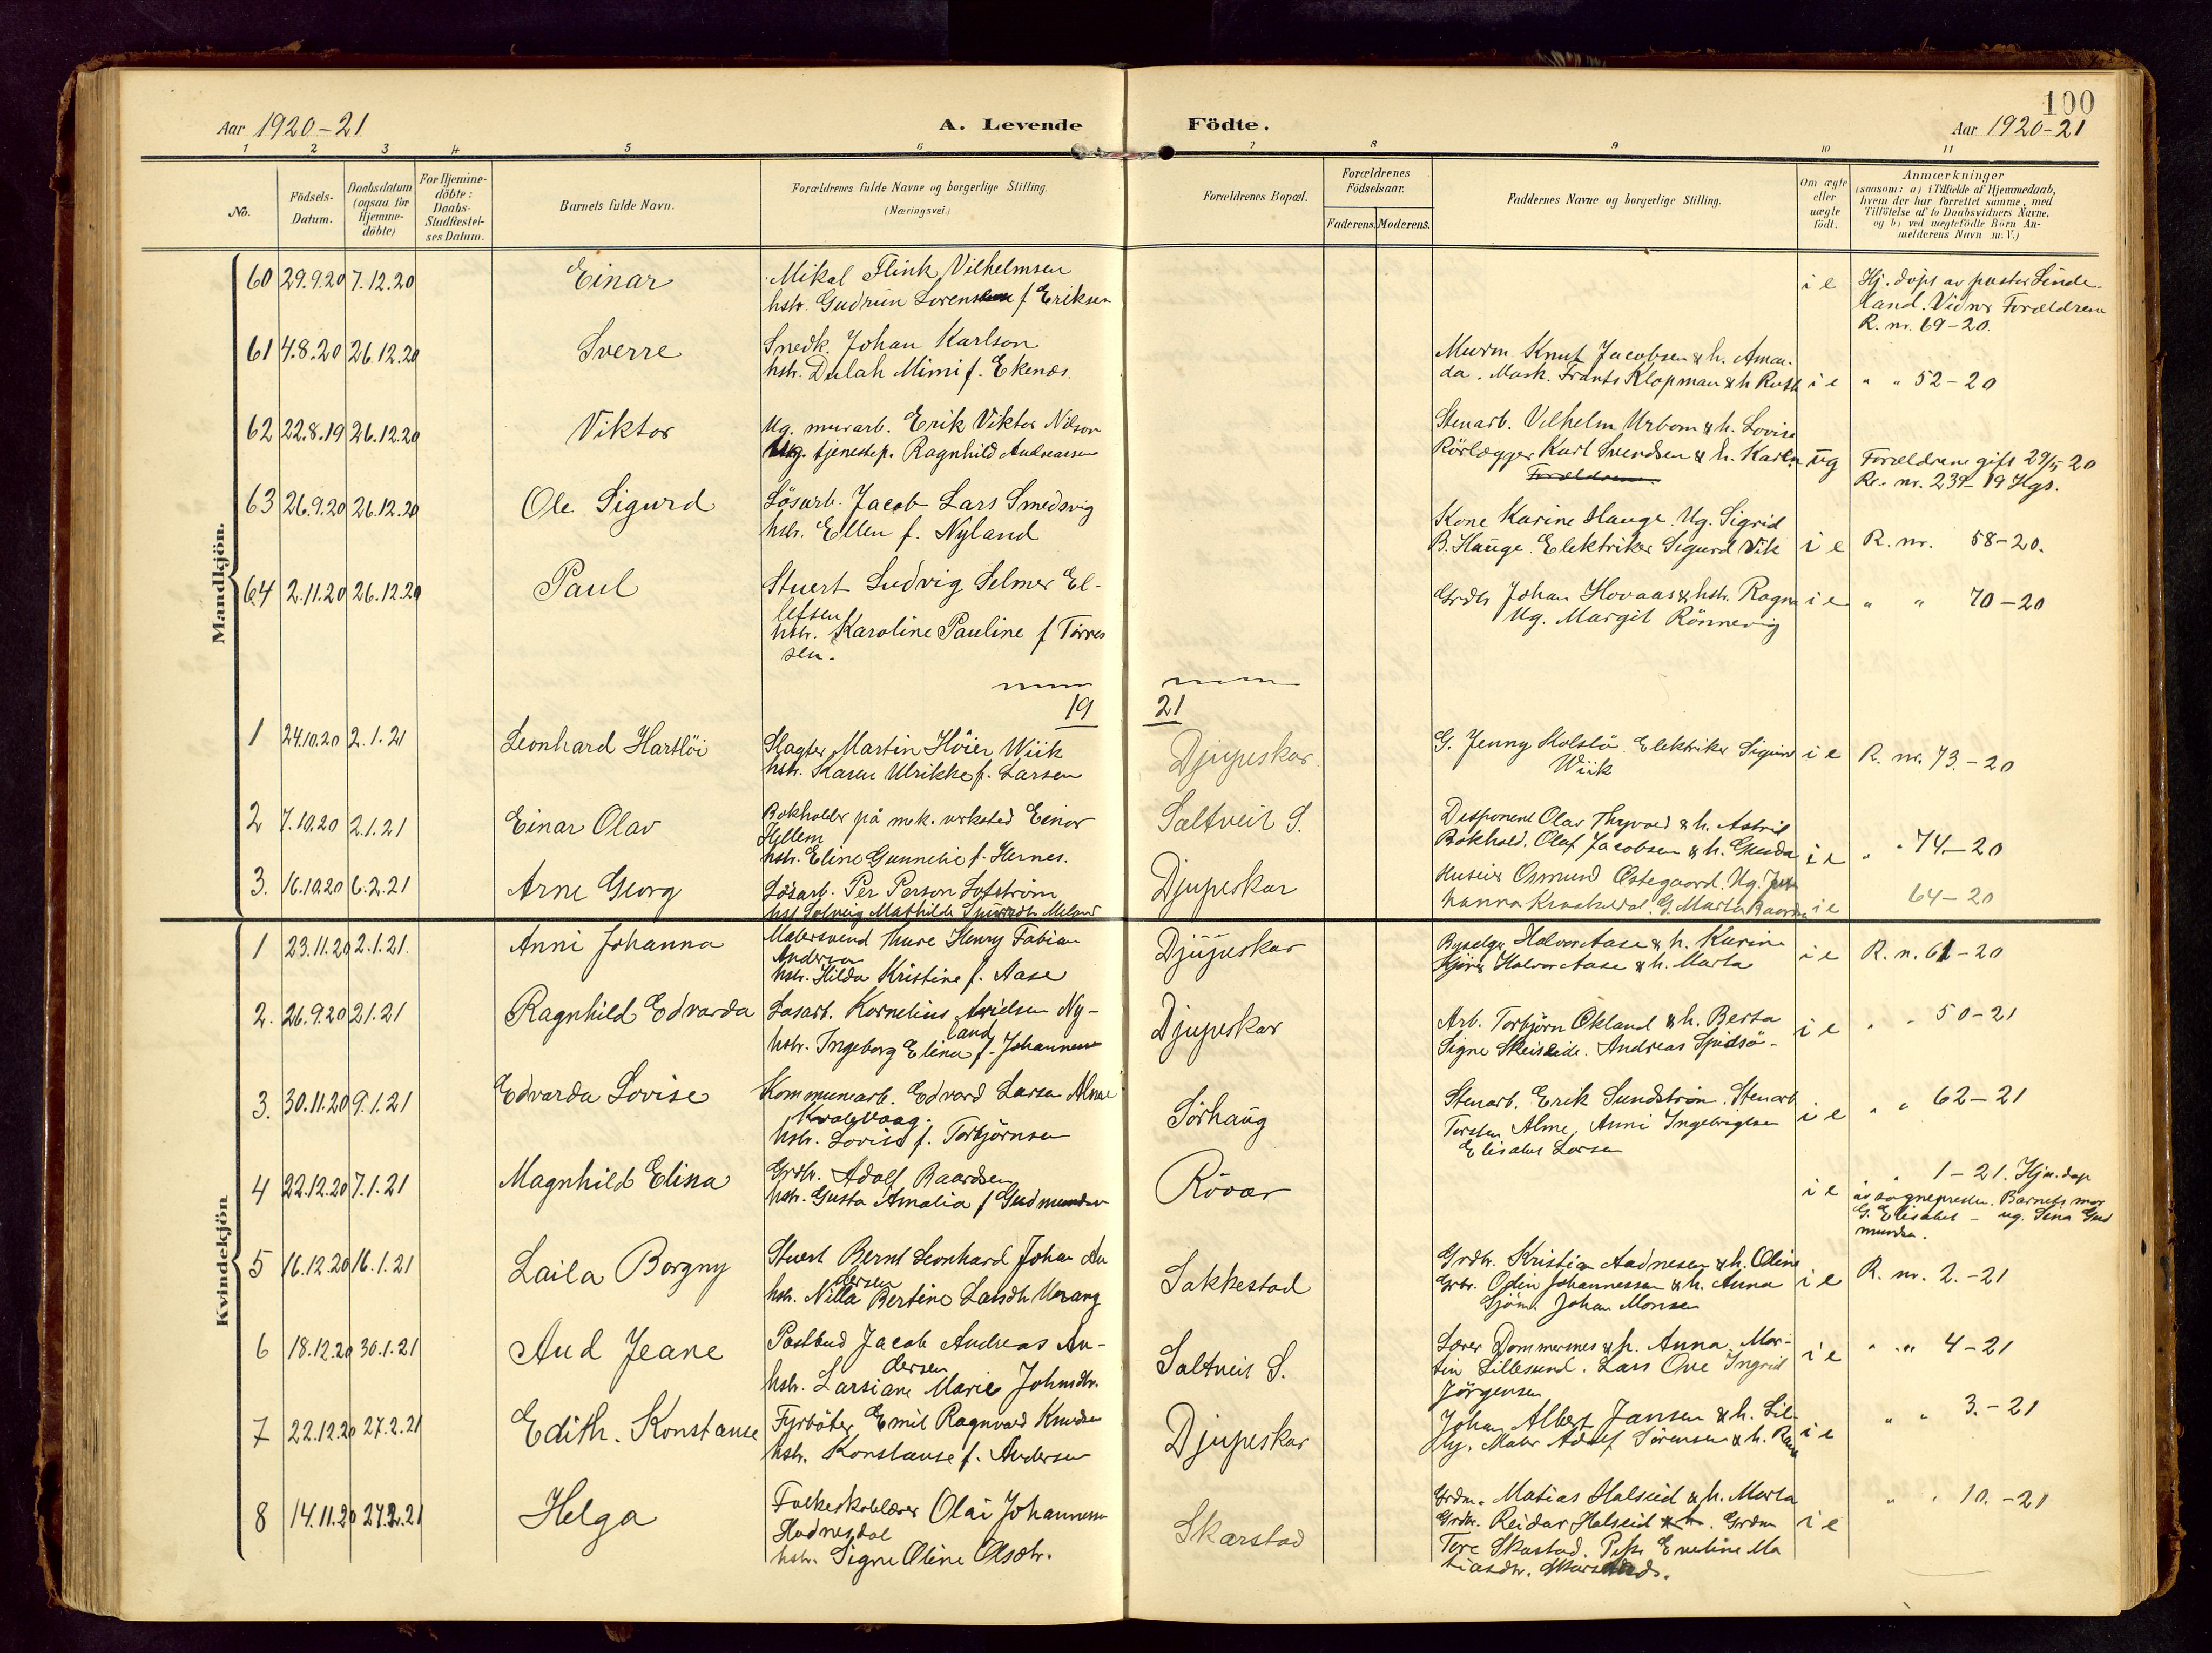 100
Aar 1920-21
A. Levende Födte.
Aar 1920-21
1 2 3 4 5 6 7 8 9 10 11
No.
Födsels-Datum.
Daabsdatum (ogsaa for Hjemme-döbte)
For Hjemme-döbte: Daabs-Stadfæstel-ses Datum.
Barnets fulde Navn.
Forældrenes fulde Navne og borgerlige Stilling. (Næringsvei.)
Forældrenes Bopæl.
Forældrenes Födselsaar.
Faderens. Moderens.
Faddernes Navne og borgerlige Stilling.
Om ægte eller uægte födt.
Anmærkninger
(saasom: a) i Tilfælde af Hjemmedaab,
hvem der har forrettet samme, med
Tilföielse af to Daabsvidners Navne,
og b) ved uægtefödte Börn An-
melderens Navn m. V.)
Mandkjön.
60 29.9.20 7.12.20 Einar
Mikal Flink Vilhelmsen
hstr. Gudrun f Eriksen
i e
Hj. döpt av pastor Linde-
land. Vidner Forældrene
R. nr. 69-20.
61 4.8.20 26.12.20 Sverre
Snedk. Johan Karlson
hstr. Dulah Mimi f. Ekenæs.
Murm. Knut Jacobsen & h. Aman-
da. Mask. Frants Klopman & h Ruth i e " " 52-20
62 22.8.19 26.12.20 Viktor
Ug. murarb. Erik Viktor Nilson
Ug. tjenestep. Ragnhild Andreassen
Stenarb. Vilhelm Urbom & h. Lovise
Rörlægger Karl Svendsen & h. Karen ug
Forældrene
Forældrene gift 29/5 20
Re. nr. 239-19 Hgs.
63 26.9.20 26.12.20 Ole Sigurd
Lösarb. Jacob Lars Smedsvig
hstr. Ellen f. Nyland
Kone Karine Hauge. Ug. Sigrid
B. Hauge. Elektriker Sigurd Vik i e R. nr. 58-20.
64 2.11.20 26.12.20 Paul
Stuert Ludvig Selmer El-
lefsen
hstr. Karoline Pauline f Törres
sen.
Grdbr Johan Hovaas & hstr. Ragna i e " " 70-20
Ug. Margit Rönnevig
19 21
1 24.10.20 2.1.21 Leonhard Hartlöi
Slagter Martin Höier Wiik
hstr. Karen Ulrikke f. Larsen
Djupeskar.
G. Jenny Kolstö. Elektriker Sigurd
Wiik
i e R. nr. 73.-20
2 7.10.20 2.1.21 Einar Olav
Bokholder på mek. verksted Einar
Hellem
hstr. Eline Gunnelie f. Hernes.
Saltveit S.
Disponent Olav Thyvold & h. Astrid
Bokhold. Olaf Jacobsen & h. Gerda i e " " 74-20
3. 16.10.20 6.2.21 Arne Georg
Lösarb. Per Person Lofström
hst Solveig Mathilde
Djupeskar
Huseier Osmund Östegaard. Ug. Jo-
hanna G. Marta i e 64-20
Kvindekjön
1 23.11.20 2.1.21. Anni Johanna
Malersvend Thure Henry Fabian
Andersen
hstr. Hilda Kristine f. Aase
Djupeskar
Byselger Halvor Aase & h. Karine
Halvor Aase & h. Marta
i e R. n. 61-20
2. 26.9.20 2.1.21 Ragnhild Edvarda
Lösarb. Kornelius Ny-
land
hstr. Ingeborg Elina f. Johannessen
Djupeskar
Arb. Torbjörn Ökland & h. Berta
Signe Skeiseide. Andreas
i e " " 50-21
3. 30.11.20 9.1.21 Edvarda Lovise
Kommunearb. Edvard Larsen Alme
Kvalevaag.
hstr. Lovise f. Torbjörnsen
Sörhaug
Stenarb. Erik Sundström. Stenarb
Torsten Alme. Anni Ingebrigtsen
Elisabet Larsen
i e " " 62-21
4 22.12.20 7.1.21 Magnhild Elina
Grdbr. Adolf Baardsen
hstr. Gusta Amalia f Gudmundsen
Rövær
i e
" 1-21. Hjm. dop
av sogneprest. Barnets mor
G. Elisabet - ug. Sina Gud
mundsen.
5 16.12.20 16.1.21 Laila Borgny
Stuert Bernt Leonhard Johan An
dersen
hstr. Nilla Bertine
Sakkestad
Grdbr. Kristian Aadnesen & h. Oline
Grbr. Odin Johannessen & h. Anna
Sjöm. Johan Monsen
i e R. nr. 2.-21
6 18.12.20 30.1.21 Aud Jeane
Postbud Jacob Andreas An-
dersen
hstr. Larsiane Marie Johnsdtr.
Saltveit S.
Lærer Dommersnes & h. Anna. Mar-
tin Lillesund. Lars Ove Ingrid
Jörgensen
i e " " 4-21
7 22.12.20 27.2.21 Edith. Konstanse
Fyrböter Emil Ragnvald Knudsen
hstr. Konstanse f. Andersen
Djupeskar
Johan Albert Jansen & h. Lil-
ly. Maler Adolf Sörensen & h.
i e " " 3.-21
8 14.11.20 27.2.21 Helga
Folkeskolelærer Olai Johannessen
Hadnesdal
hstr. Signe Oline Olsdtr.
Skarstad
Grdm. Matias Halseid & h. Marta
Grdbr. Reidar Halseid Grdm
Tore Skastad. Eveline Ma
tiasdtr.
i e " " 10.-21